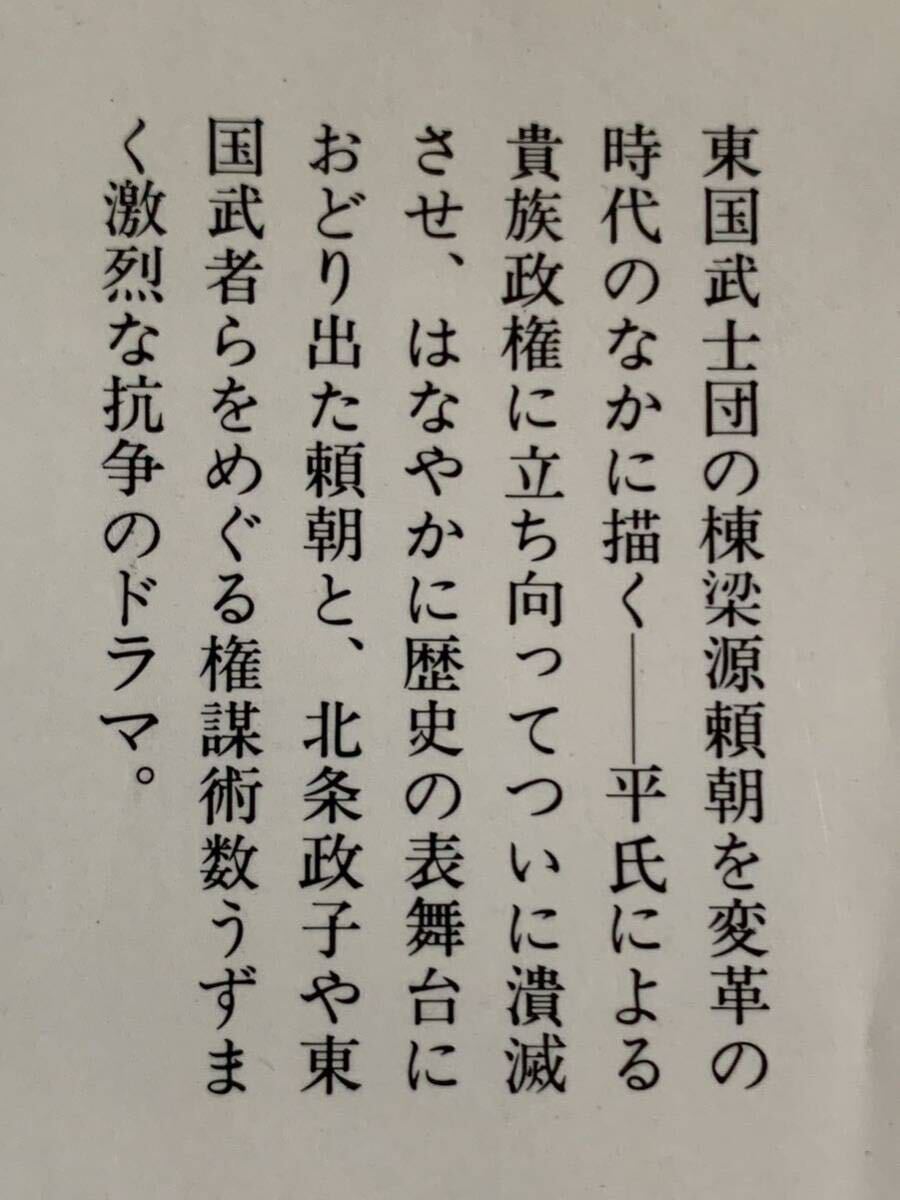 東国武士団の棟梁源頼朝を変革の
時代のなかに描く――平氏による
貴族政権に立ち向ってついに潰滅
させ、はなやかに歴史の表舞台に
おどり出た頼朝と、北条政子や東
国武者らをめぐる権謀術数うずま
く激烈な抗争のドラマ。